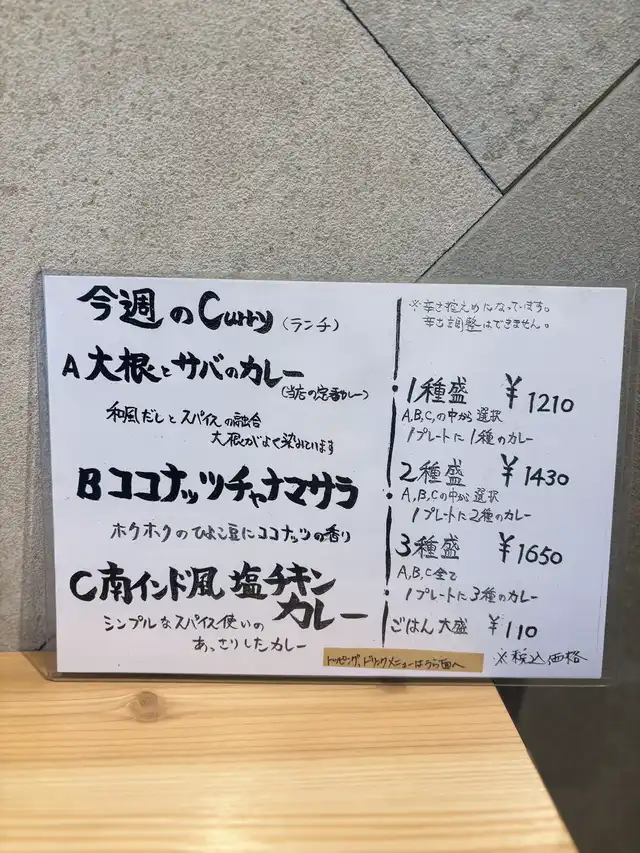 今週のCurry(ランチ)
A 大根とサバのカレー
(当店の定番カレー)
和風だしとスパイスの融合
大根がよく染みています
B ココナッツチャナマサラ
ホクホクのひよこ豆にココナッツの香り
C 南インド風 塩チキン
カレー
シンプルなスパイス使いの
あっさりしたカレー
※辛さ控えめになっています。
辛さ調整はできません。
・1種盛 ¥1210
A,B,C,の中から選択
1プレートに1種のカレー
2種盛 ¥1430
・A,B,Cの中から選択
1プレートに2種のカレー
3種盛 ¥1650
A,B,C全て
・1プレートに3種のカレー
ごはん大盛 ¥110
トッピング、ドリンクメニューはうら面へ
※税込価格